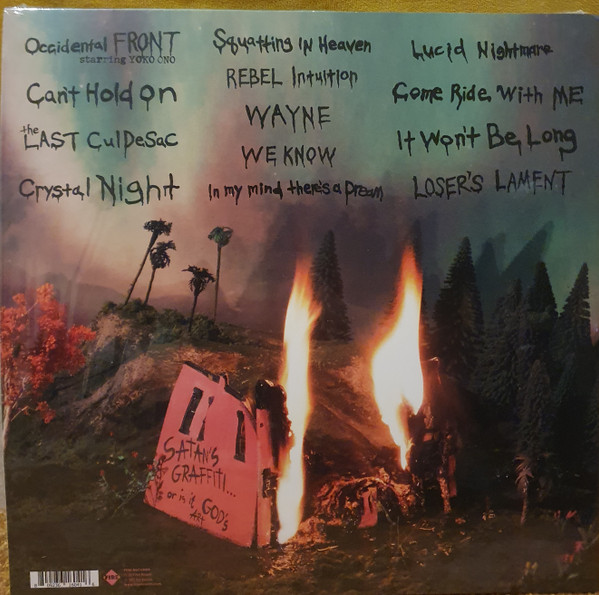 Occidental FRONT
starring YOKO ONO
Can't Hold On
the
LAST CulDeSac
Crystal Night
Squatting IN Heaven
REBEL Intuition
WAYNE
WE KNOW
In my mind there's a Dream
Lucid Nightmare
Come Ride With ME
It Won't Be Long
LOSER'S LAMENT
SATAN'S
GRAFFITI...
or is it GOD's
ART